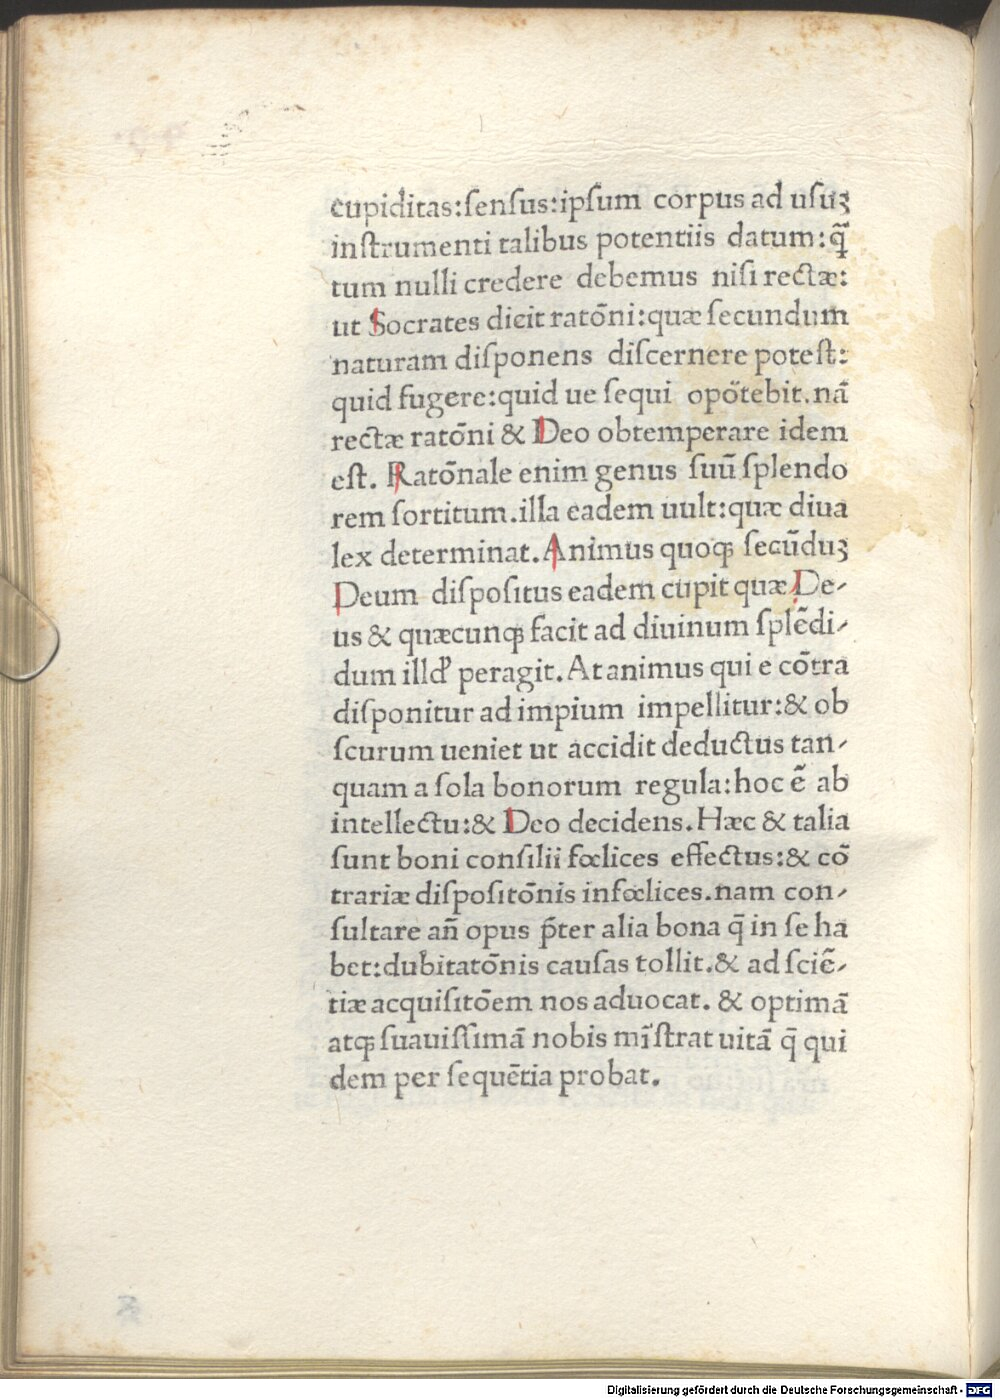 cupiditas:ſenſus:ipſum corpus ad uſuꝫ
inſtrumenti talibus potentiis datum:q̃
tum nulli credere debemus niſi rectæ:
ut Socrates dicit ratōni:quæ ſecundum
naturam diſponens diſcernere poteſt:
quid fugere:quid ue ſequi opőtebit.nā
rectæ ratōni & Deo obtemperare idem
eſt. Ratōnale enim genus ſuū ſplendo
rem ſortitum.illa eadem uult:quæ diua
lex determinat.Animus quoqꝫ ſecūduꝫ
Deum diſpoſitus eadem cupit quæ De-
us & quæcunqꝫ facit ad diuinum ſplēdi-
dum illd' peragit.At animus qui e cōtra
diſponitur ad impium impellitur:& ob
ſcurum ueniet ut accidit deductus tan-
quam a ſola bonorum regula:hoc ē ab
intellectu:& Deo decidens.Hæc & talia
ſunt boni conſilii fœlices effectus:& cō
trariæ diſpoſitōnis infœlices.nam con-
ſultare an̄ opus p̄ter alia bona q̄ in ſe ha
bet:dubitatōnis cauſas tollit.& ad ſciē-
tiæ acquiſitōem nos aduocat. & optimā
atqꝫ ſuauiſſimā nobis mīſtrat uitā q̄ qui
dem per ſequētia probat.
Digitalisierung gefördert durch die Deutsche Forschungsgemeinschaft - DFG